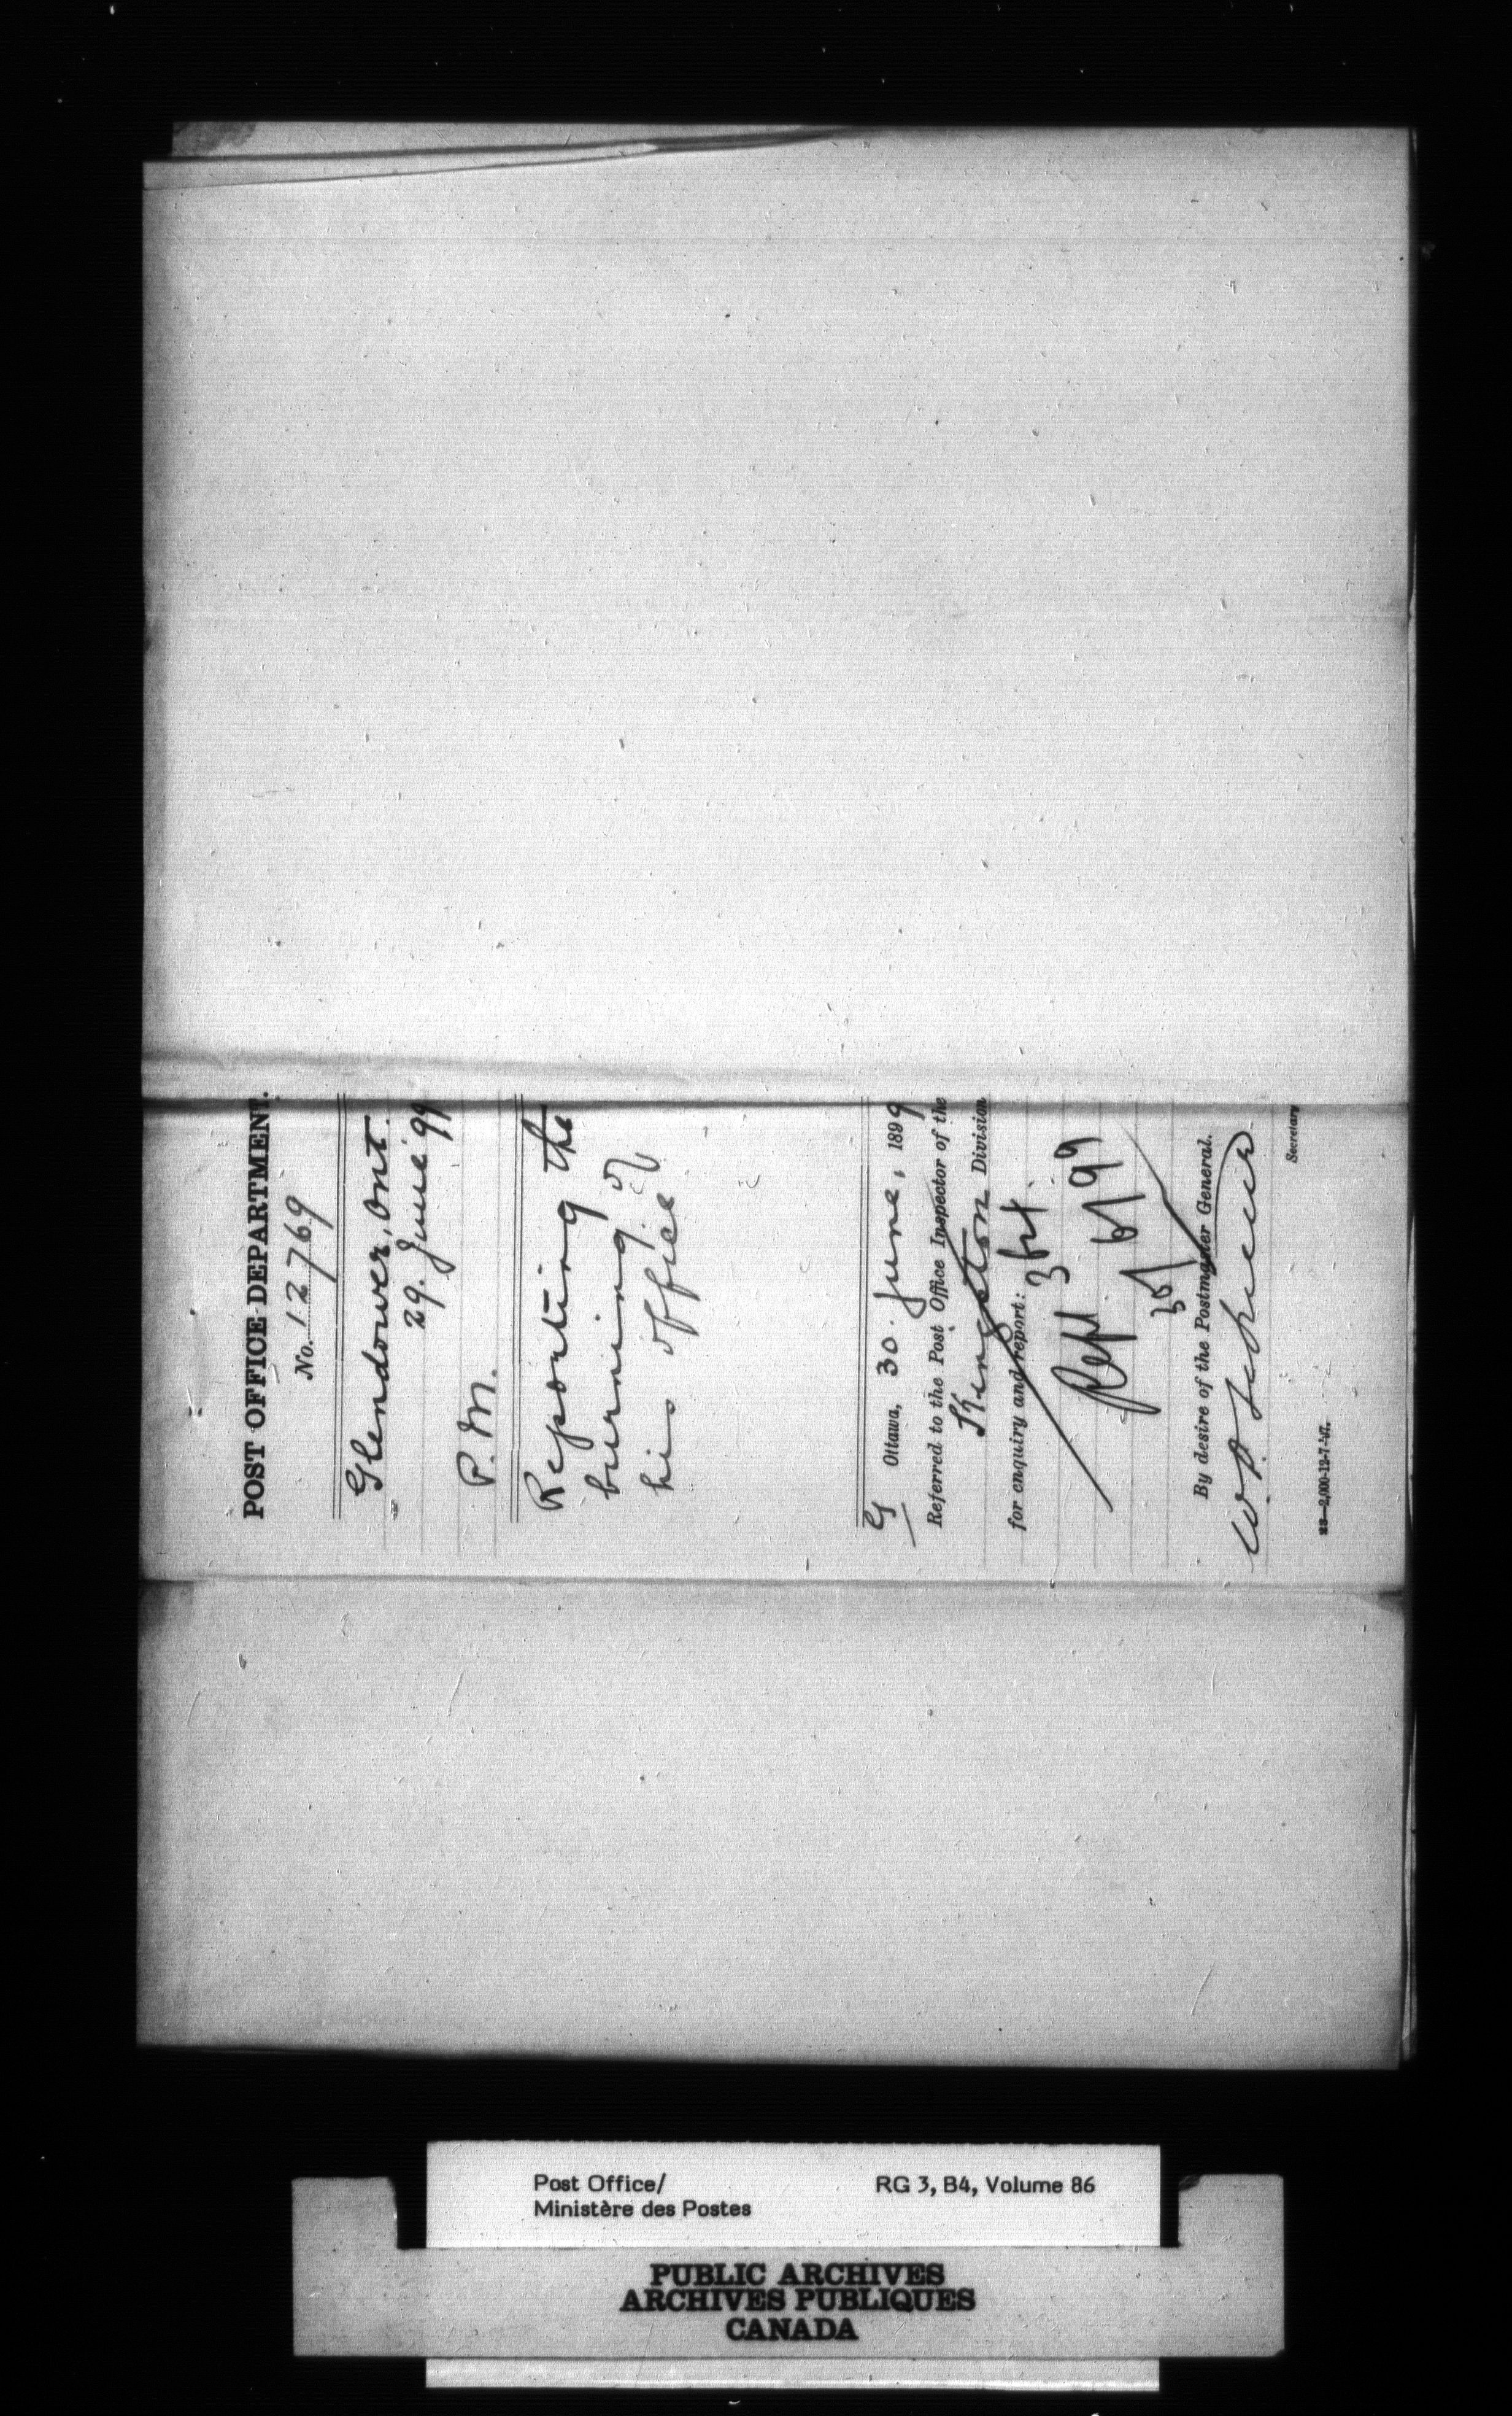 POST OFFICE DEPARTMENT.
No. 12769
Glendower, Ont.
29. June 99
P. M.
Reporting the
burning of
his office
G
Ottawa, 30. June, 1899
Referred to the Post Office Inspector of the
Kingston Division
for enquiry and report:
Rept
By desire of the Postmaster General.
Secretary
23—2,000-12-7-'97.
Post Office/
Ministère des Postes
RG 3, B4, Volume 86
PUBLIC ARCHIVES
ARCHIVES PUBLIQUES
CANADA